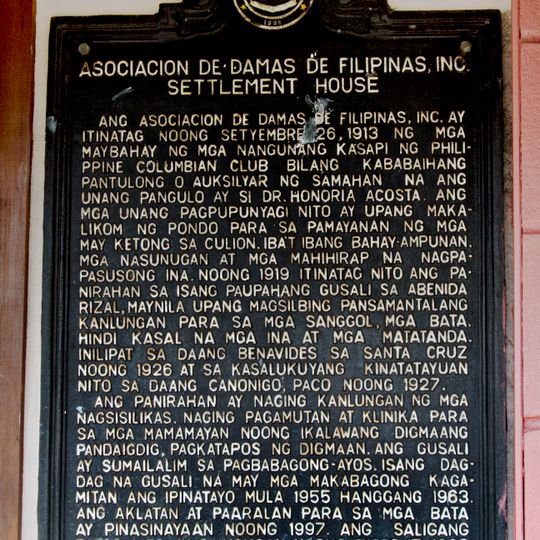 1996
ASOCIACION DE DAMAS DE FILIPINAS, INC.
SETTLEMENT HOUSE
ANG ASOCIACION DE DAMAS DE FILIPINAS, INC. AY
ITINATAG NOONG SETYEMBRE 26, 1913 NG MGA
MAYBAHAY NG MGA NANGUNANG KASAPI NG PHILI-
PPINE COLUMBIAN CLUB BILANG KABABAIHANG
PANTULONG O AUKSILYAR NG SAMAHAN NA ANG
UNANG PANGULO AY SI DR. HONORIA ACOSTA. ANG
MGA UNANG PAGPUPUNYAGI NITO AY UPANG MAKA-
LIKOM NG PONDO PARA SA PAMAYANAN NG MGA
MAY KETONG SA CULION. IBA'T IBANG BAHAY-AMPUNAN,
MGA NASUNUGAN AT MGA MAHIHIRAP NA NAGPA-
PASUSONG INA. NOONG 1919 ITINATAG NITO ANG PA-
NIRAHAN SA ISANG PAUPAHANG GUSALI SA ABENIDA
RIZAL, MAYNILA UPANG MAGSILBING PANSAMANTALANG
KANLUNGAN PARA SA MGA SANGGOL, MGA BATA.
HINDI KASAL NA MGA INA AT MGA MATATANDA.
INILIPAT SA DAANG BENAVIDES SA SANTA CRUZ
NOONG 1926 AT SA KASALUKUYANG KINATATAYUAN
NITO SA DAANG CANONIGO, PACO NOONG 1927.
ANG PANIRAHAN AY NAGING KANLUNGAN NG MGA
NAGSISILIKAS. NAGING PAGAMUTAN AT KLINIKA PARA
SA MGA MAMAMAYAN NOONG IKALAWANG DIGMAANG
PANDAIGDIG, PAGKATAPOS NG DIGMAAN. ANG GUSALI
AY SUMAILALIM SA PAGBABAGONG-AYOS. ISANG DAG-
DAG NA GUSALI NA MAY MGA MAKABAGONG KAGA-
MITAN ANG IPINATAYO MULA 1955 HANGGANG 1963.
ANG AKLATAN AT PAARALAN PARA SA MGA BATA
AY PINASINAYAAN NOONG 1997. ANG SALIGANG